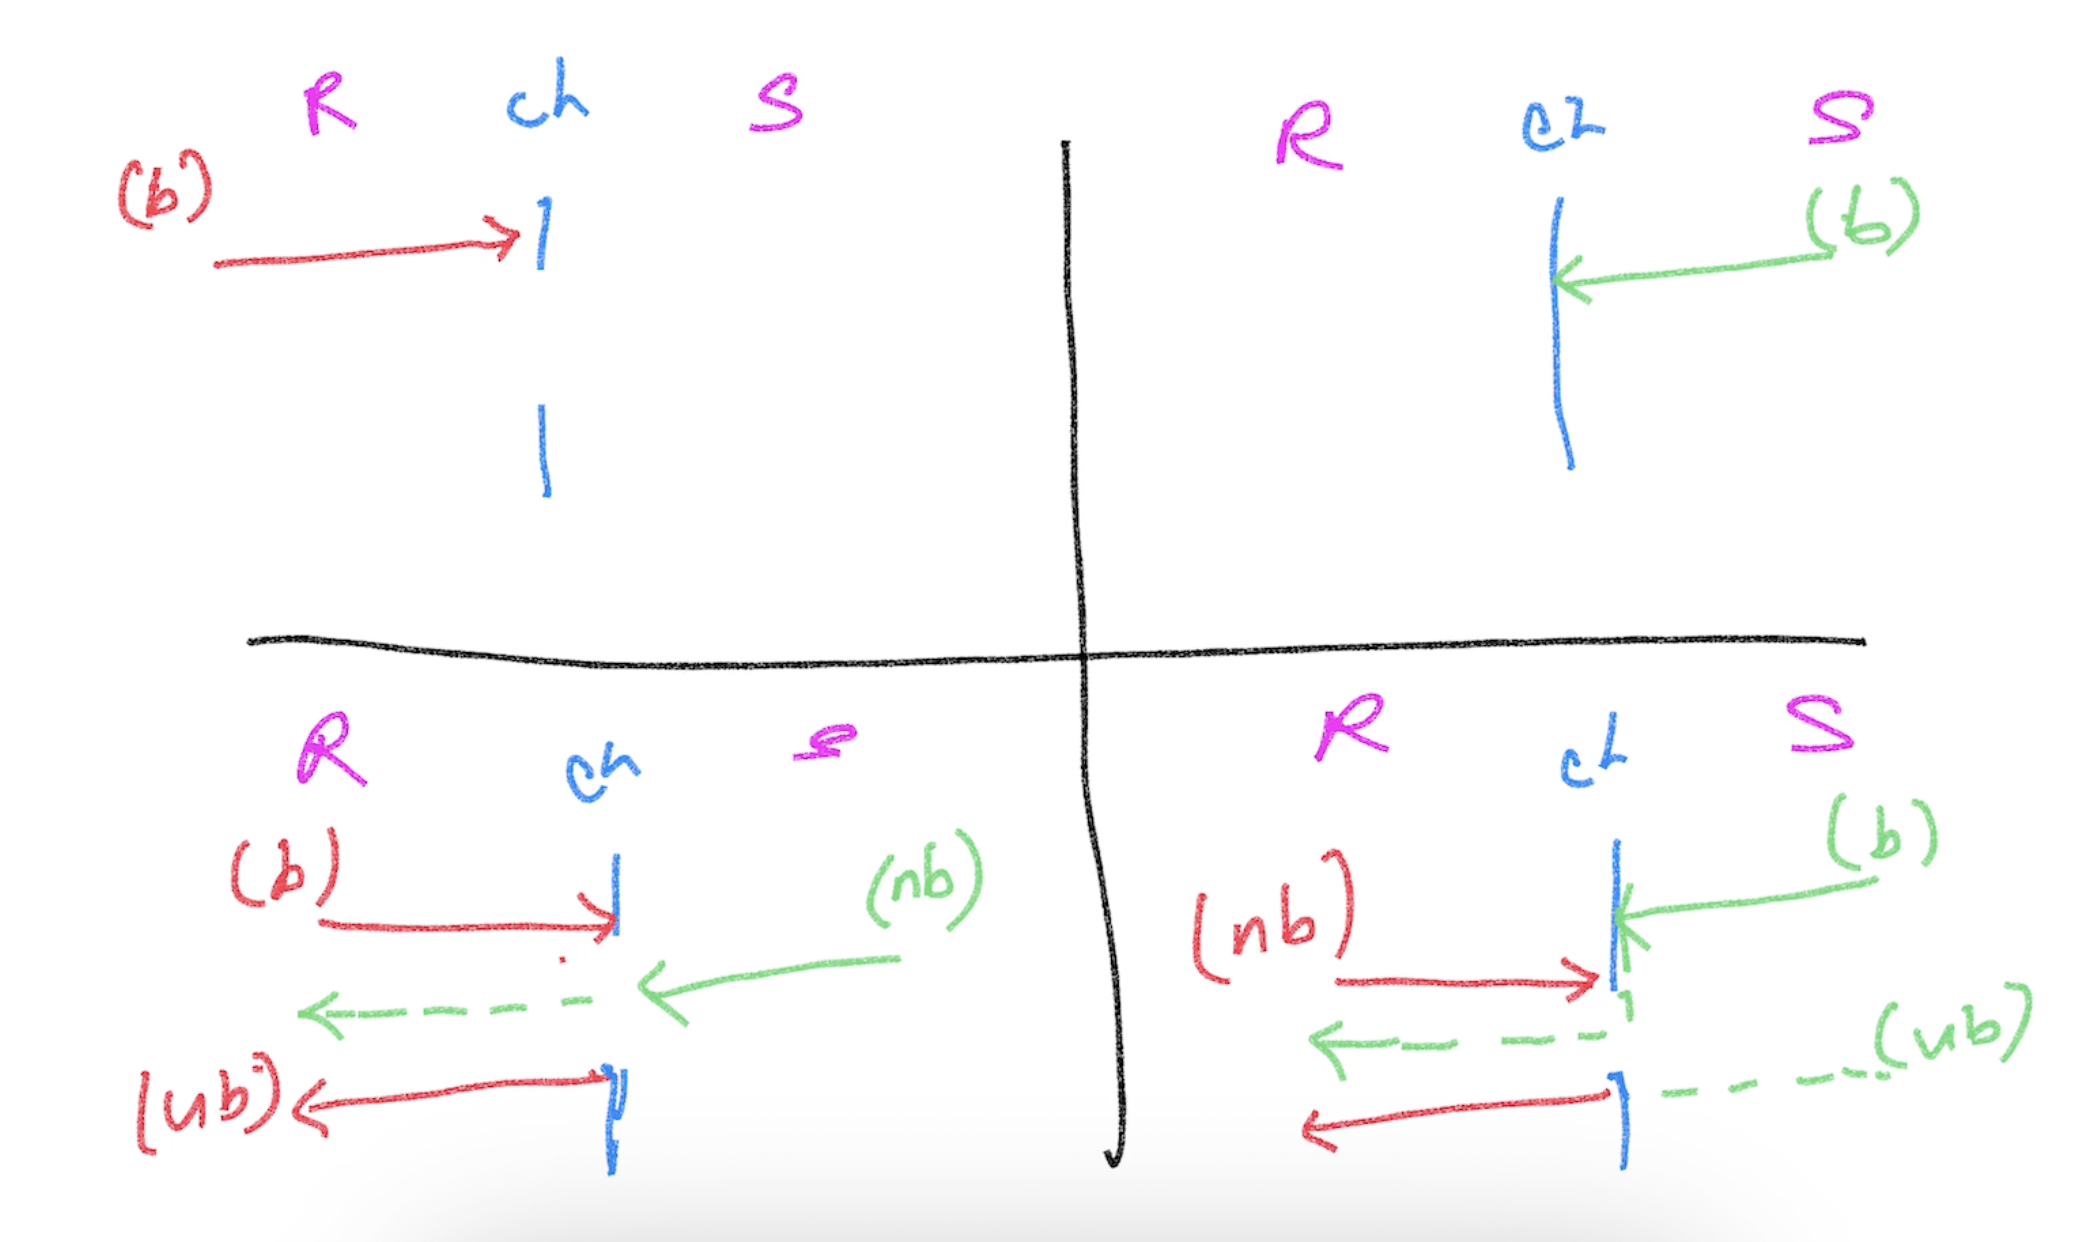 R ch S
(b)
R ch S
(b)
R ch S
(b) (nb)
(ub)
R ch S
(nb) (b)
(ub)